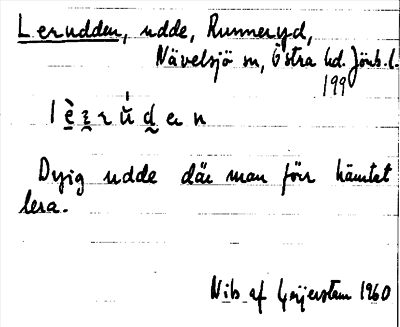 Lerudden, udde, Runneryd,
Nävelsjö sn, Östra hd. Jönk. l.
199
Dyig udde där man förr hämtat
lera.
Nils af Geijerstam 1960